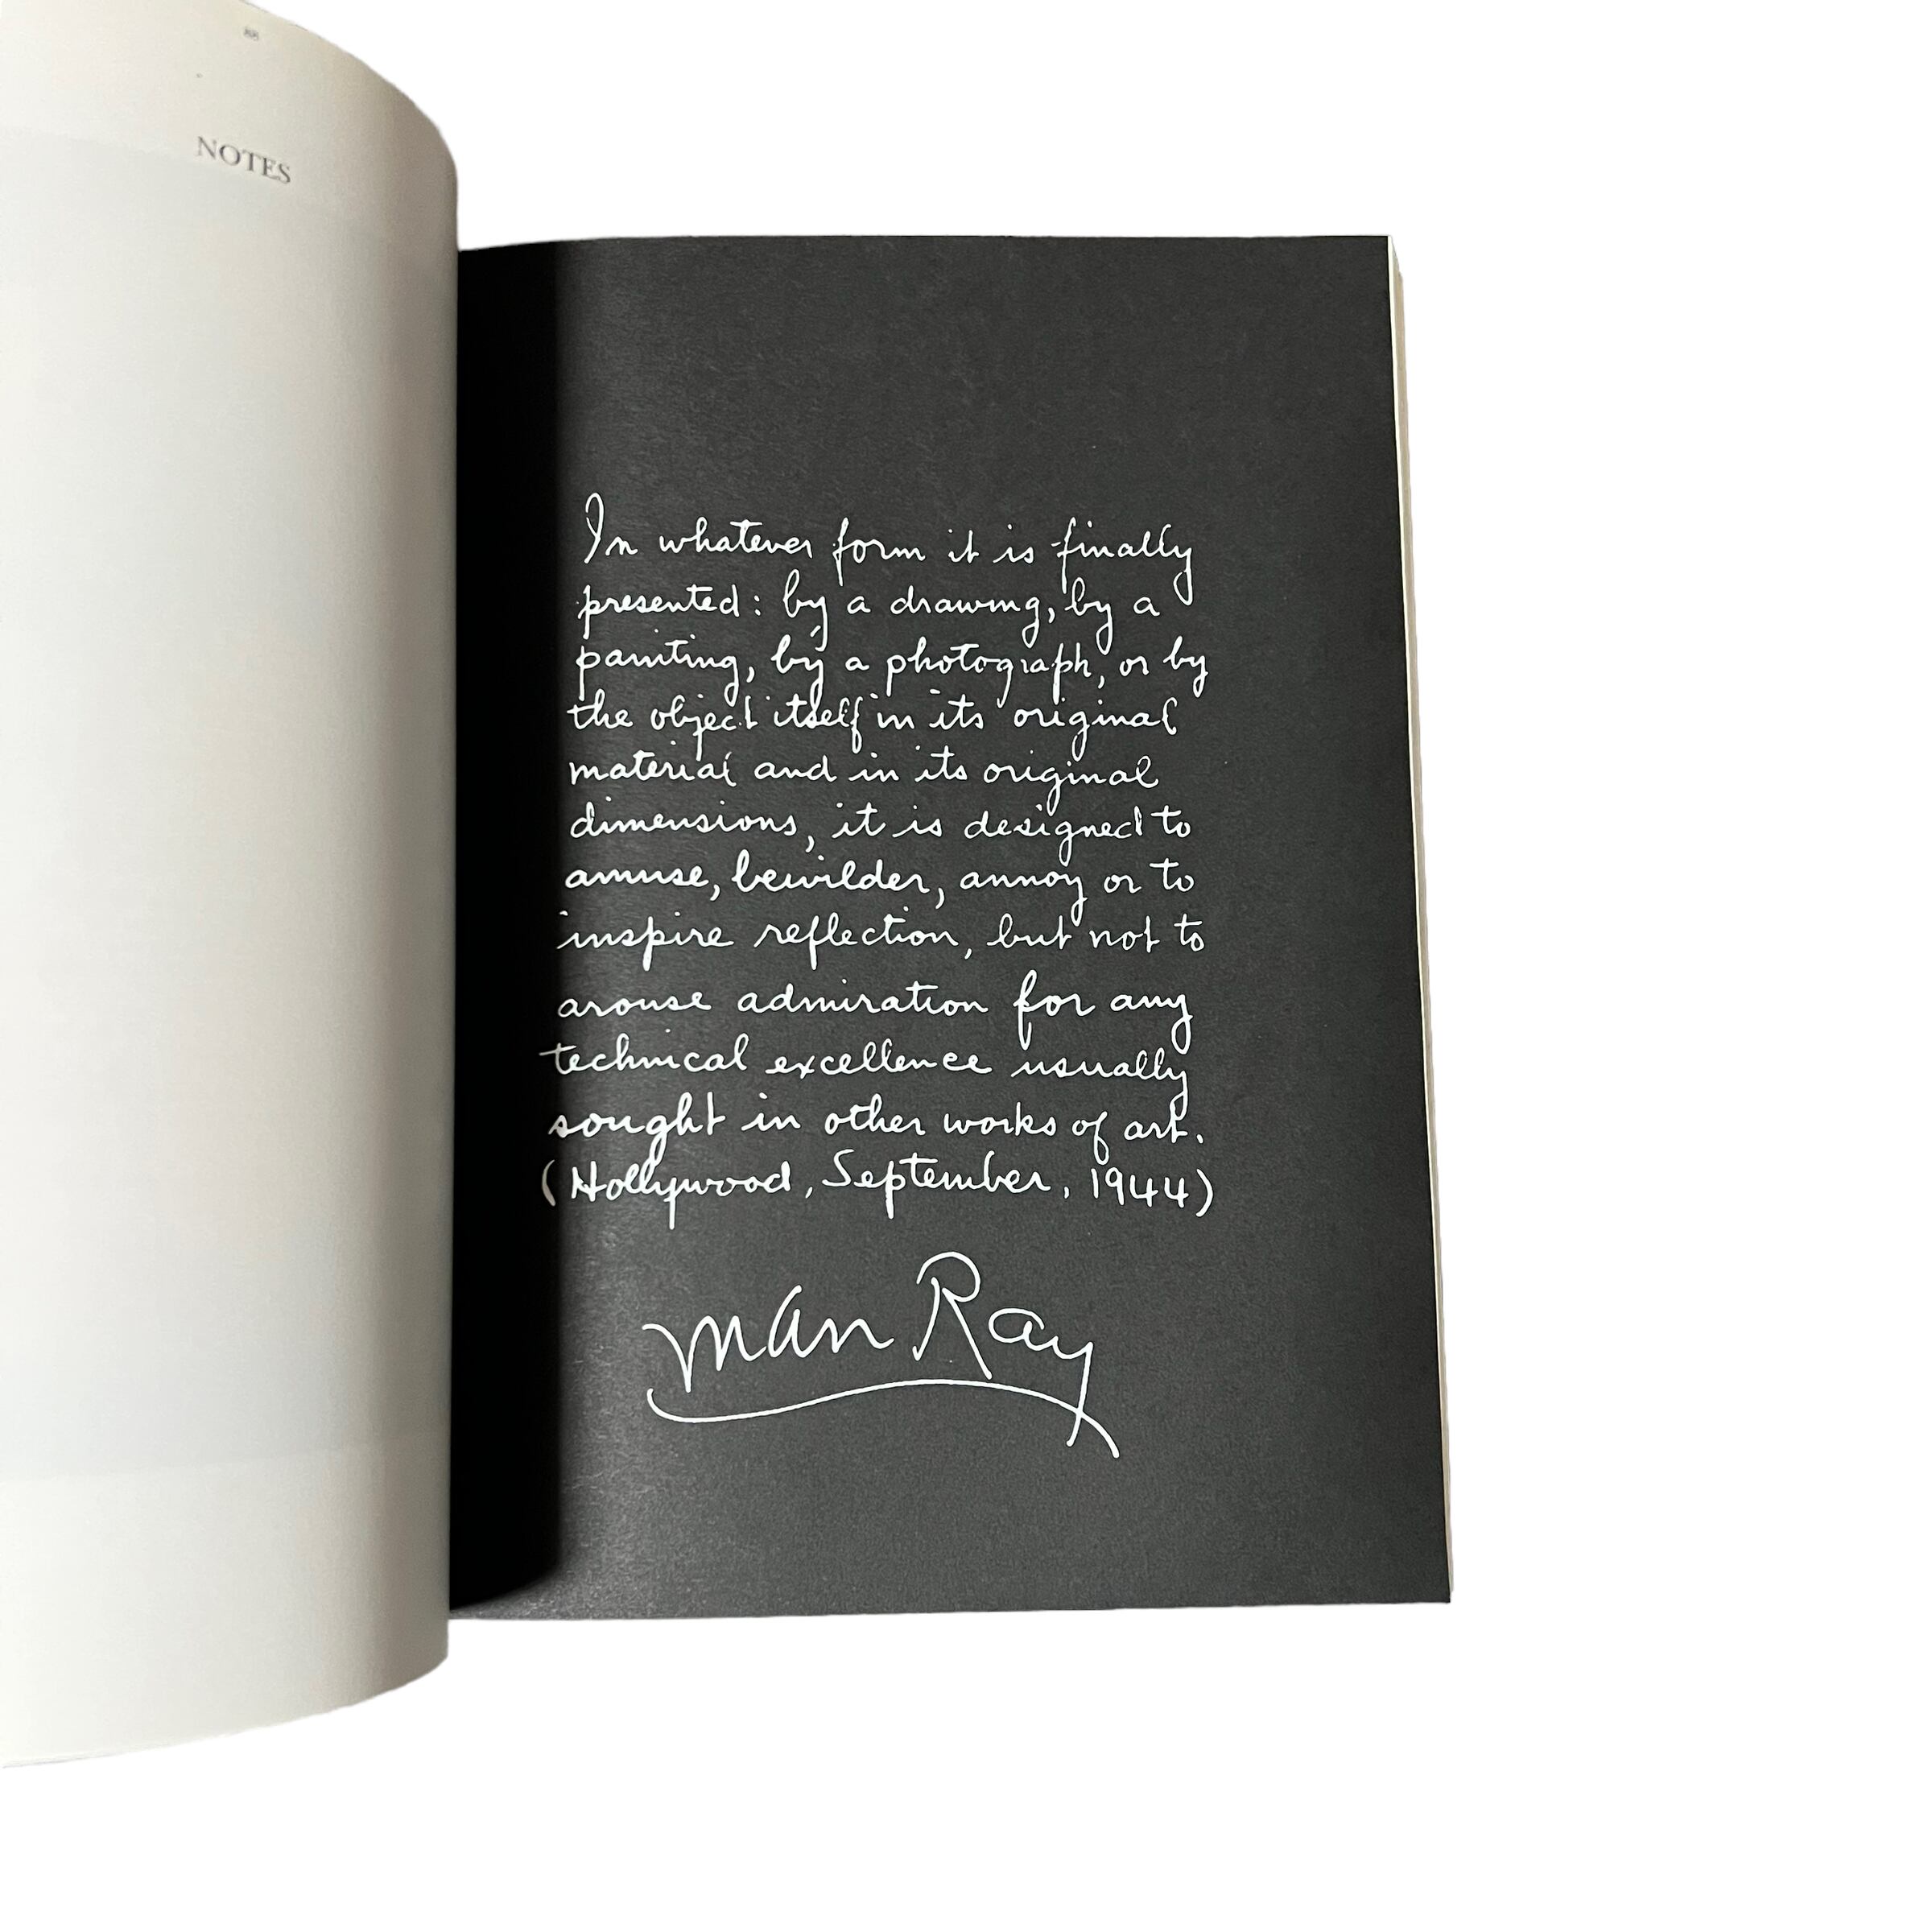 88
NOTES
In whatever form it is finally
presented: by a drawing, by a
painting, by a photograph, or by
the object itself in its original
material and in its original
dimensions, it is designed to
amuse, bewilder, annoy or to
inspire reflection, but not to
arouse admiration for any
technical excellence usually
sought in other works of art.
(Hollywood, September, 1944)
Man Ray